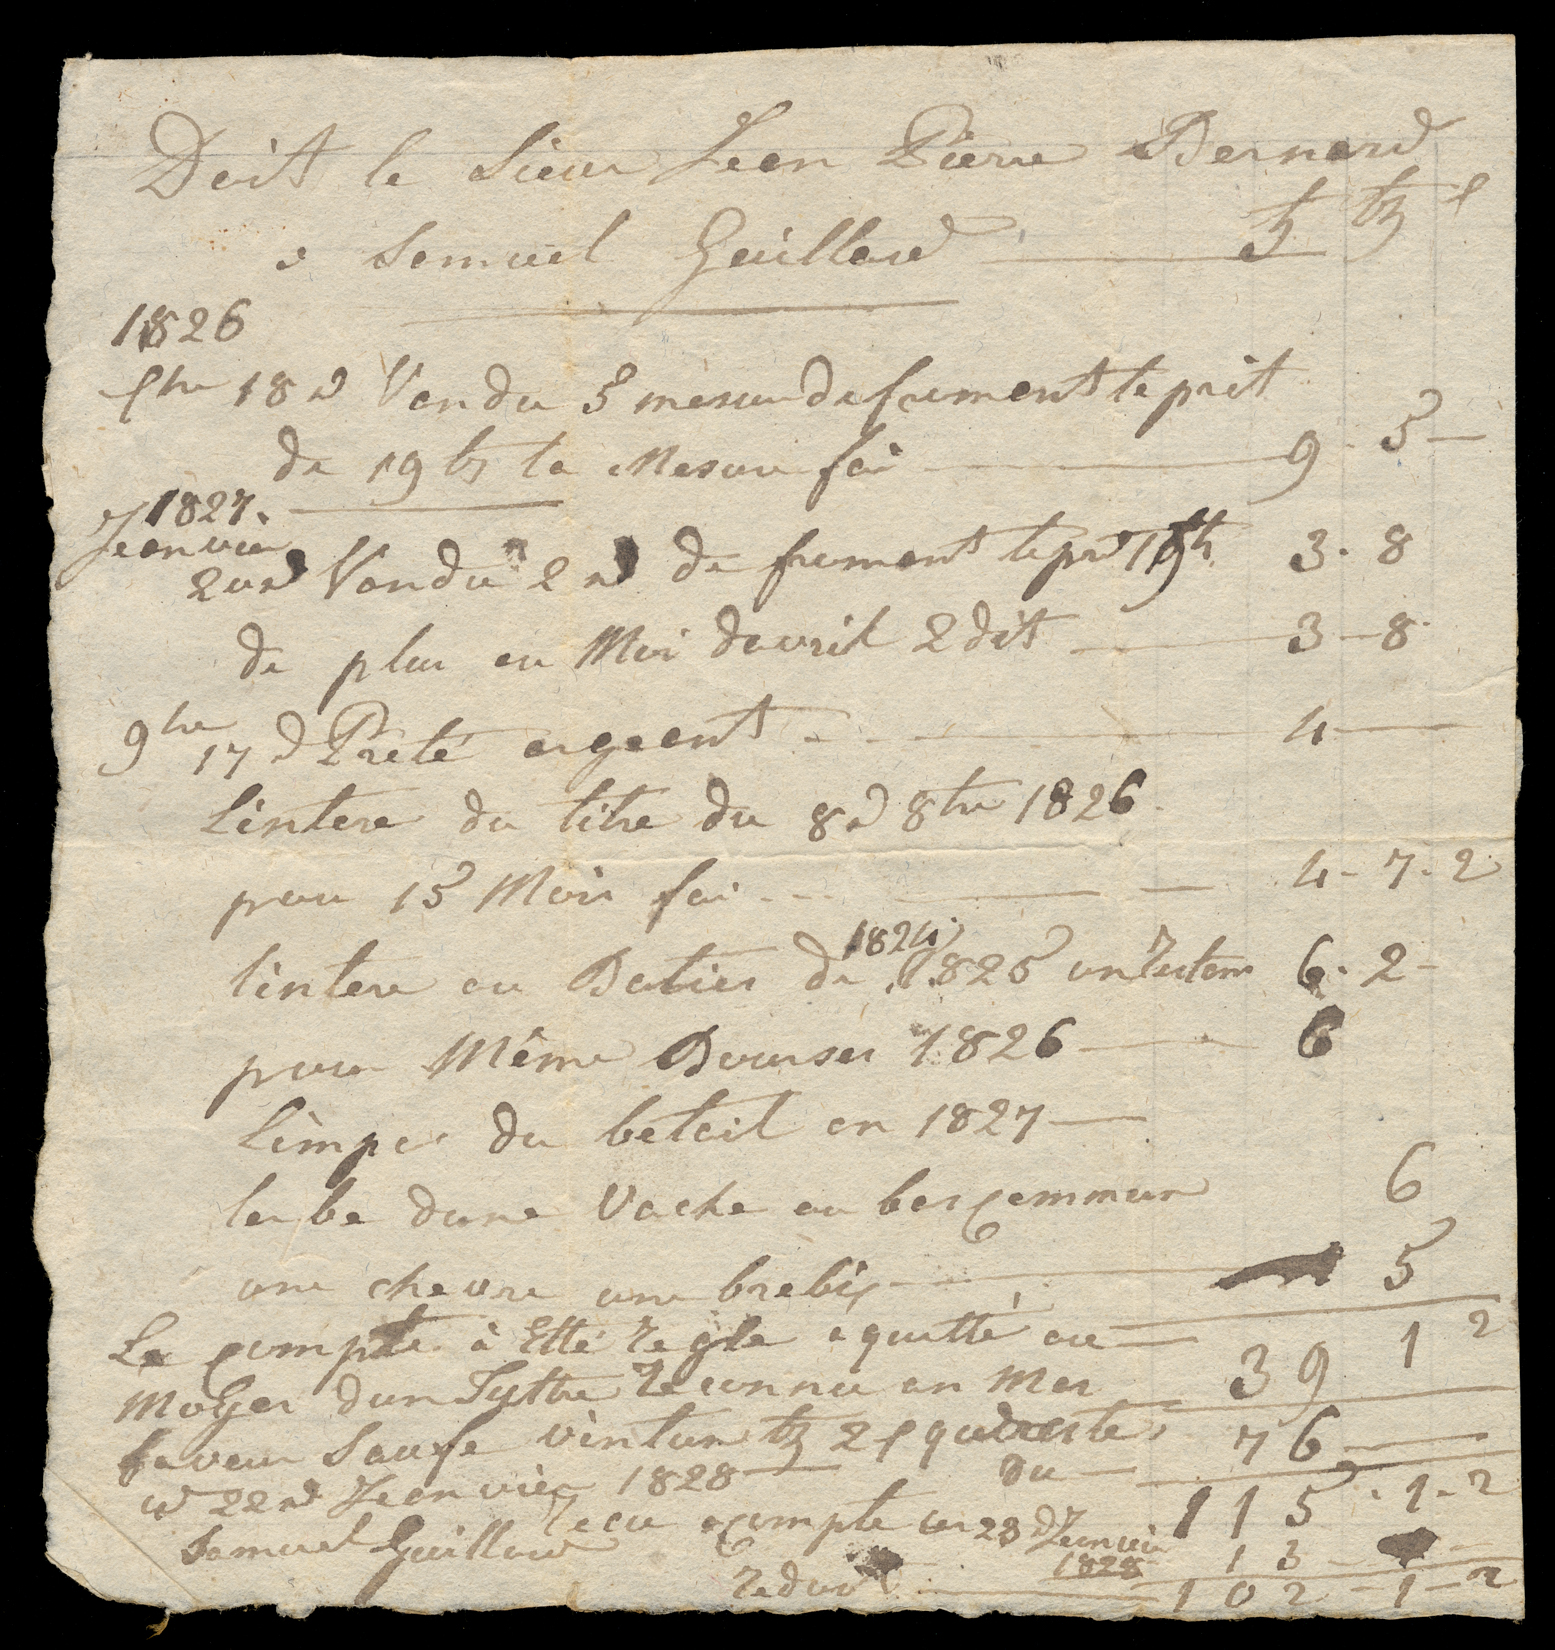 Doit le Sieur Jean Pierre Bernard
a Samuel Guillard
1826
18 d Vendu 5 mesur de froment le prit
de 19 bz la Mesure fai 9 - 5 -
1827.
Jeanvier
2 me Vendu 2 d de froment le pr 19 bz 3 - 8
de plus au Moi davril 2 dit 3 - 8
9bre 17 d Prêté argeant 4
Lintere du titre du 8 d 8bre 1826
pour 15 Mois fai 4 - 7 - 2
lintere au Batier de 1824 1825 un 6 - 2 -
pour Même Bourser 1826 6
Limpo du betail en 1827
lerbe dune Vache au bas commun 6
une chevre une brebis 5
Le compte à Etté regle aquitté au 39 1 2
Moyen dun Tyttre reconnu en Mas
faveur Saufe vintun bz 2 que reste 76
du
ce 22 d Jeanvier 1828 115 - 1 - 2
recu acompte ce 23 d Jeanvier
1828 13
Samuel Guillard
redu 102 - 1 - 2